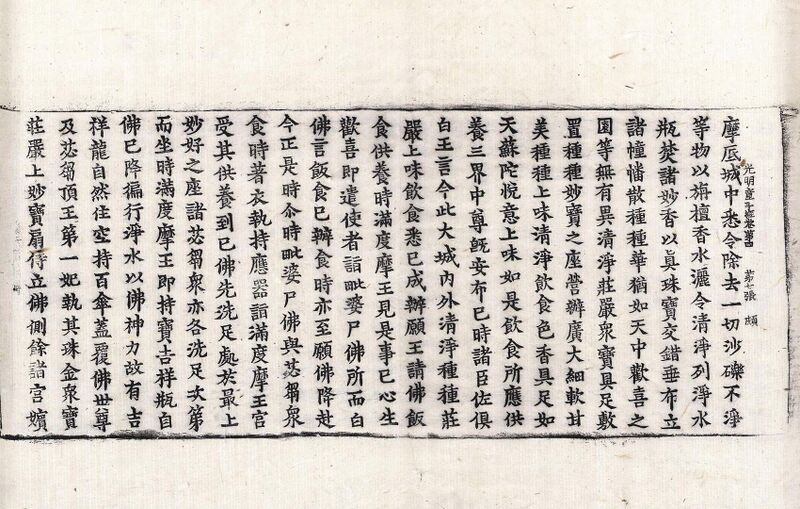 摩底城中悉令除去一切沙礫不淨
光明童子經卷第四 第七張 頗
等物以旃檀香水灑令清淨列淨水
瓶焚諸妙香以真珠寶交錯垂布立
諸幢幡散種種華猶如天中歡喜之
園等無有異清淨莊嚴衆寶具足敷
置種種妙寶之座營辦廣大細軟甘
美種種上味清淨飲食色香具足如
天蘇陀悅意上味如是飲食所應供
養三界中尊旣安布已時諸臣佐俱
白王言今此大城內外清淨種種莊
嚴上味飲食悉已成辦願王請佛飯
食供養時滿度摩王見是事已心生
歡喜即遣使者詣毗婆尸佛所而白
佛言飯食已辦食時亦至願佛降赴
今正是時尒時毗婆尸佛與苾芻衆
食時著衣執持應器詣滿度摩王宮
受其供養到已佛先洗足處於最上
妙好之座諸苾芻衆亦各洗足次第
而坐時滿度摩王即持寶吉祥瓶自
佛已降徧行淨水以佛神力故有吉
祥龍自然住空持百傘蓋覆佛世尊
及苾芻頂王第一妃執其珠金衆寶
莊嚴上妙寶扇侍立佛側餘諸宮嬪